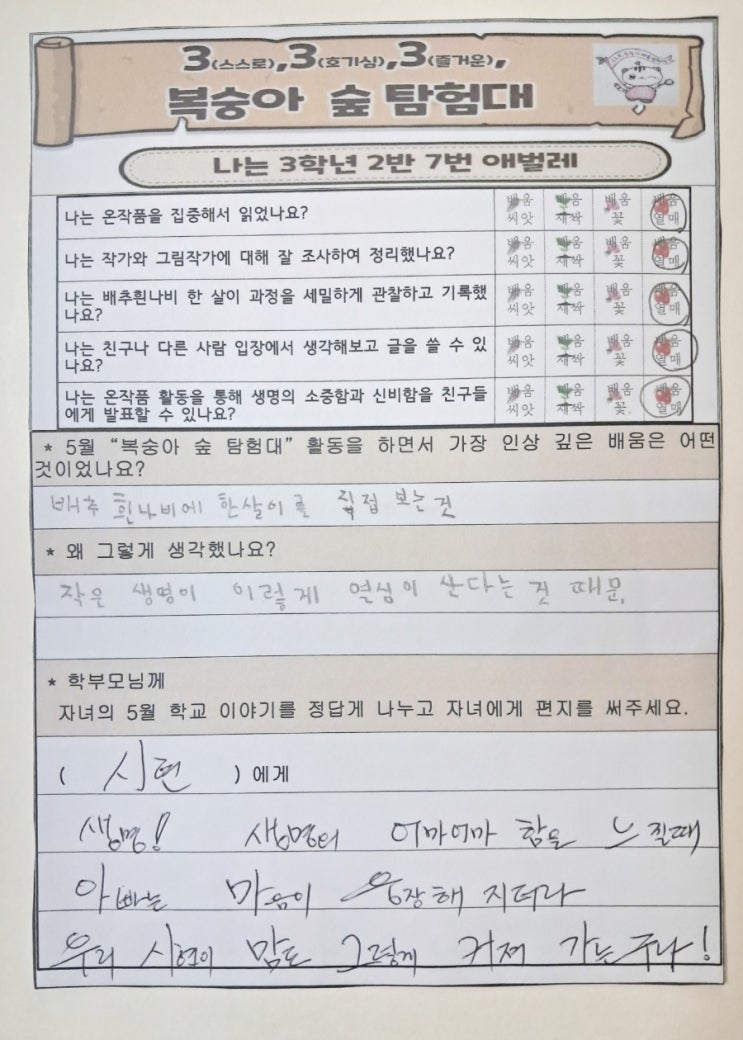 3(스스로),3(호기심),3(즐거운),
복숭아 숲 탐험대
나는 3학년 2반 7번 애벌레
나는 온작품을 집중해서 읽었나요? 배움 씨앗 배움 새싹 배움 꽃 배움 열매
나는 작가와 그림작가에 대해 잘 조사하여 정리했나요? 배움 씨앗 배움 새싹 배움 꽃 배움 열매
나는 배추흰나비 한 살이 과정을 세밀하게 관찰하고 기록했
나요? 배움 씨앗 배움 새싹 배움 꽃 배움 열매
나는 친구나 다른 사람 입장에서 생각해보고 글을 쓸 수 있
나요? 배움 씨앗 배움 새싹 배움 꽃 배움 열매
나는 온작품 활동을 통해 생명의 소중함과 신비함을 친구들
에게 발표할 수 있나요? 배움 씨앗 배움 새싹 배움 꽃. 배움 열매
* 5월 “복숭아 숲 탐험대” 활동을 하면서 가장 인상 깊은 배움은 어떤
것이었나요?
배추 흰나비에 한살이를 직접 보는 것
* 왜 그렇게 생각했나요?
작은 생명이 이렇게 열심이 산다는 것 때문,
* 학부모님께
자녀의 5월 학교 이야기를 정답게 나누고 자녀에게 편지를 써주세요.
( 시현 ) 에게
생명! 생명의 어마어마 함을 느낄때
아빠는 마음이 웅장해 지더라
우리 시현이 맘도 그렇게 커져 가는구나!